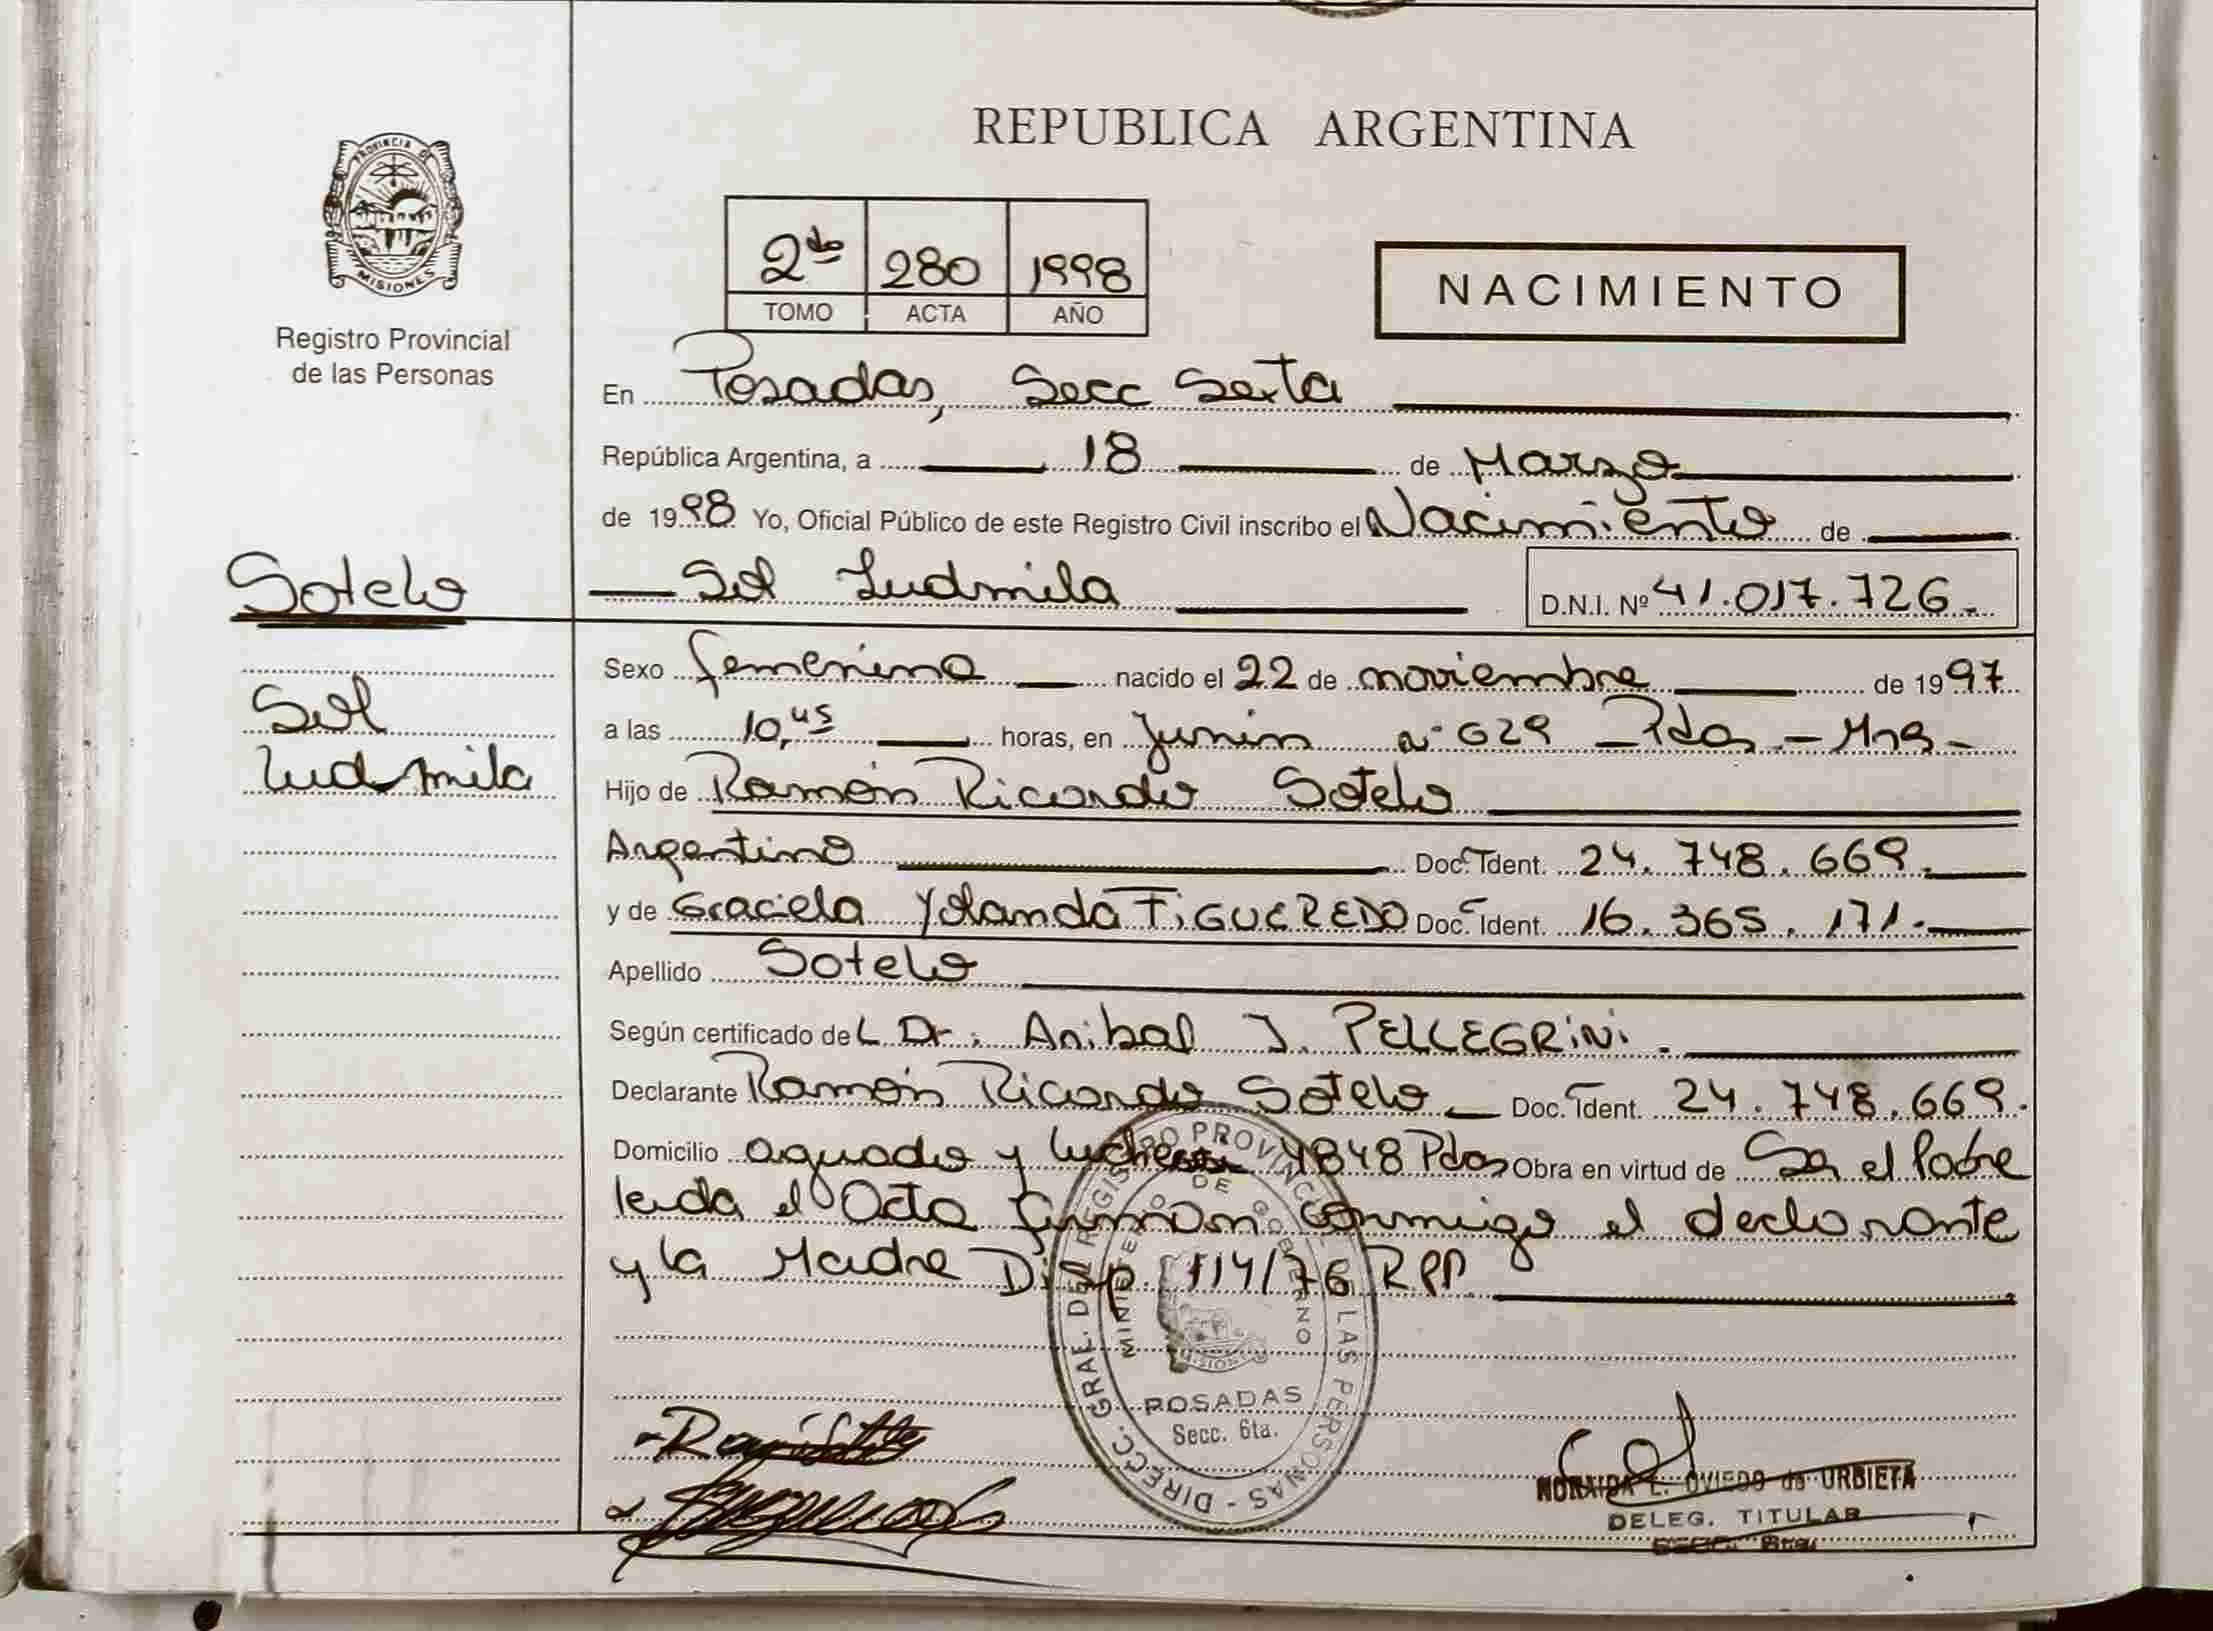 REPUBLICA ARGENTINA
PROVINCIA DE
MISIONES
Registro Provincial
de las Personas
2do 280 1998
TOMO ACTA AÑO
NACIMIENTO
En Posadas, Secc Sexta
República Argentina, a 18 de Marzo
de 1998 Yo, Oficial Público de este Registro Civil inscribo el Nacimiento de
Sol Ludmila D.N.I. Nº 41.017.726.-
Sotelo
Sol
Ludmila
Sexo femenino nacido el 22 de noviembre de 1997
a las 10,45 horas, en Junin nº 629 - Pdas. - Mns -
Hijo de Ramón Ricardo Sotelo
Argentino Doc. Ident. 24.748.669.
y de Graciela Yolanda FIGUEREDO Doc. Ident. 16.365.171.
Apellido Sotelo
Según certificado del Dr. Anibal J. PELLEGRINI.
Declarante Ramón Ricardo Sotelo Doc. Ident. 24.748.669.
Domicilio aguado y 4848 Pdas Obra en virtud de Ser el Padre
leida el Acta firman conmigo el declarante
y la Madre Disp. 114/76 RPP.
DIRECC. GRAL. DEL REGISTRO PROVINCIAL DE LAS PERSONAS -
MINISTERIO DE GOBIERNO
MISIONES
POSADAS
Secc. 6ta.
NORAIDA E. OVIEDO de URBIETA
DELEG. TITULAR